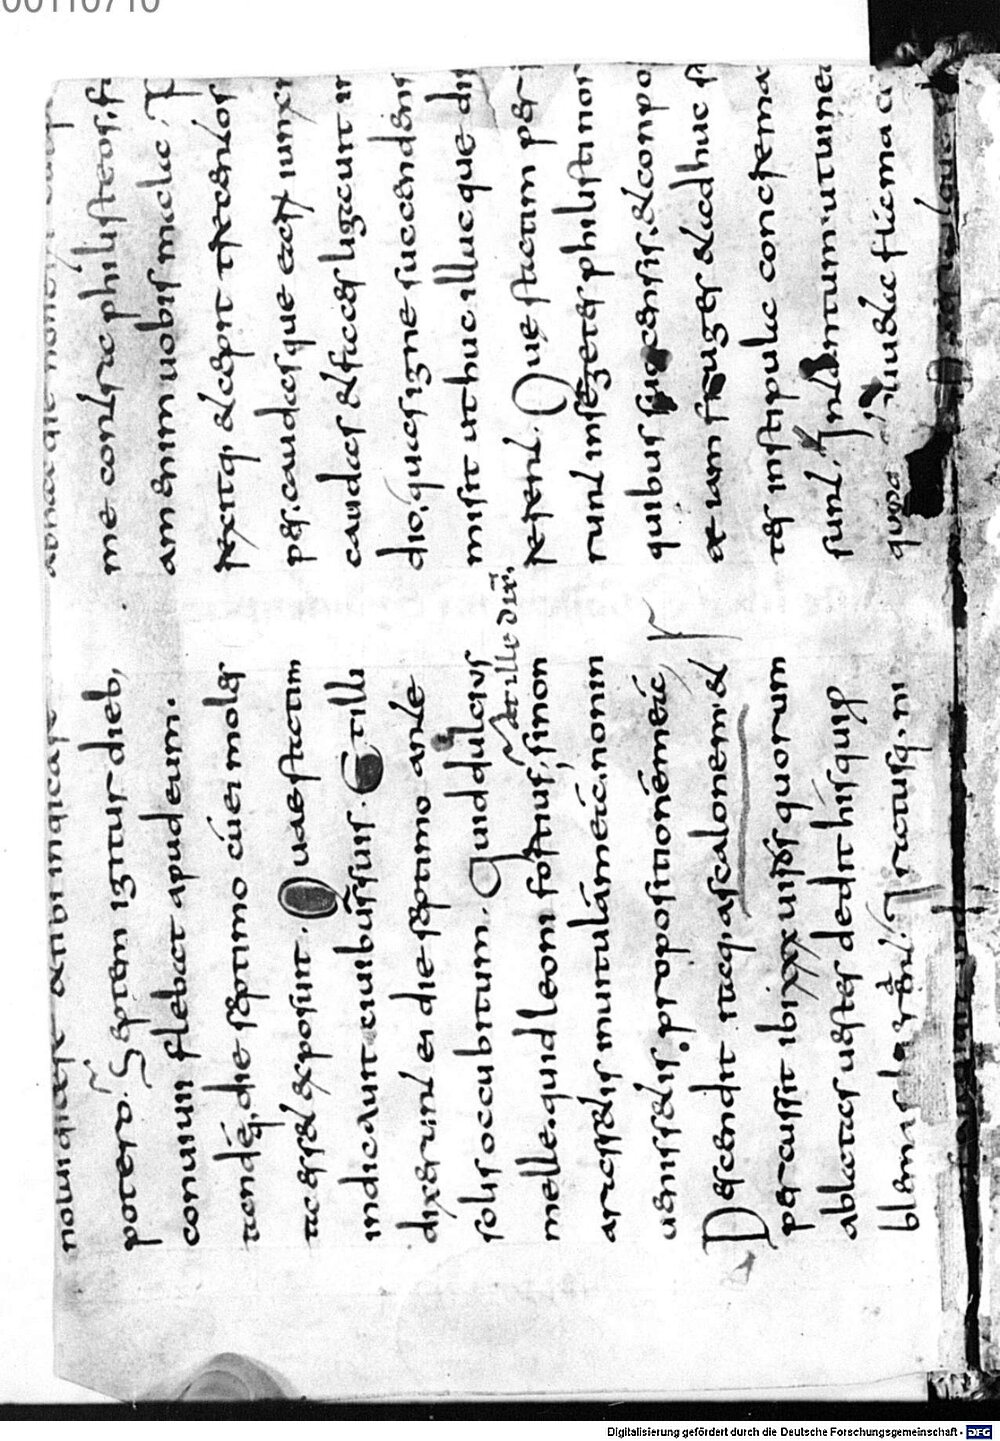 nolui dicere & tibi indicare
potero. Septem igitur dieb;
conuiuii flebat apud eum.
tandēq; die septimo cū ei mol&
ta ess& exposuit. Quae statim
indicauit ciuibus suis. Et illi
dixerunt ei die septimo ante
solis occubitum. Quid dulcius
melle. quid leone fortius; si non
& ille dix̄.
arass&is in uitula mea, non in
ueniss&is propositionē meā
Descendit itaq; ascalonem &
percussit ibi xxx uiros quorum
ablatas uestes dedit his qui p
blema soluerant. Iratusq; ni
ab hac die non erit culpa
me contra philisteos; fa
am enim uobis mala. P
rexitq; & cepit trecentos
pes. caudasque eaꝝ iunxi
caudas & faces ligauit in
dio, quas igne succendens
misit ut huc illucque dis
rerent. Quę statim per
runt in segetes philistinor
quibus succensis. & conpo
æ iam fruges & adhuc s
tes in stipula concrema
sunt. In tantum ut uinea
quoq; & oliu&a flamma c
Digitalisierung gefördert durch die Deutsche Forschungsgemeinschaft - DFG